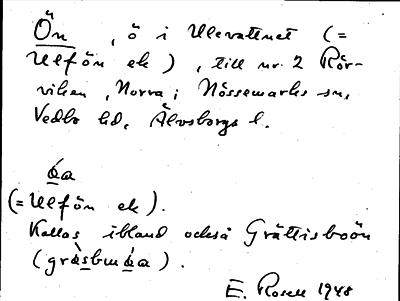 Ön, ö i Ulevattnet (=
Ulfön ek), till nr. 2 Rör-
viken, Norra; Nössemarks sn,
Vedbo hd, Älvsborgs l.
(= Ulfön ek).
Kallas ibland också Grättisboön
E. Rosell 1948